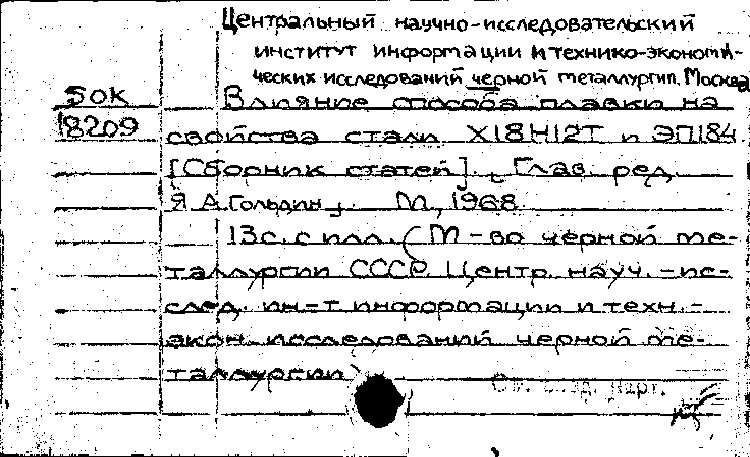 Центральный научно-исследовательский
институт информации и технико-экономи-
ческих исследований черной металлургии. Москва
50к Влияние способа плавки на
18209 свойства стали Х18Н12Т и ЭП184
[Сборник статей]. Глав. ред.
Я. А. Гольдин. М., 1968.
13с. с илл. (М-во черной ме-
таллургии СССР. Центр. науч.-ис-
след. ин-т информации и техн.-
экон. исследований черной ме-
таллургии)